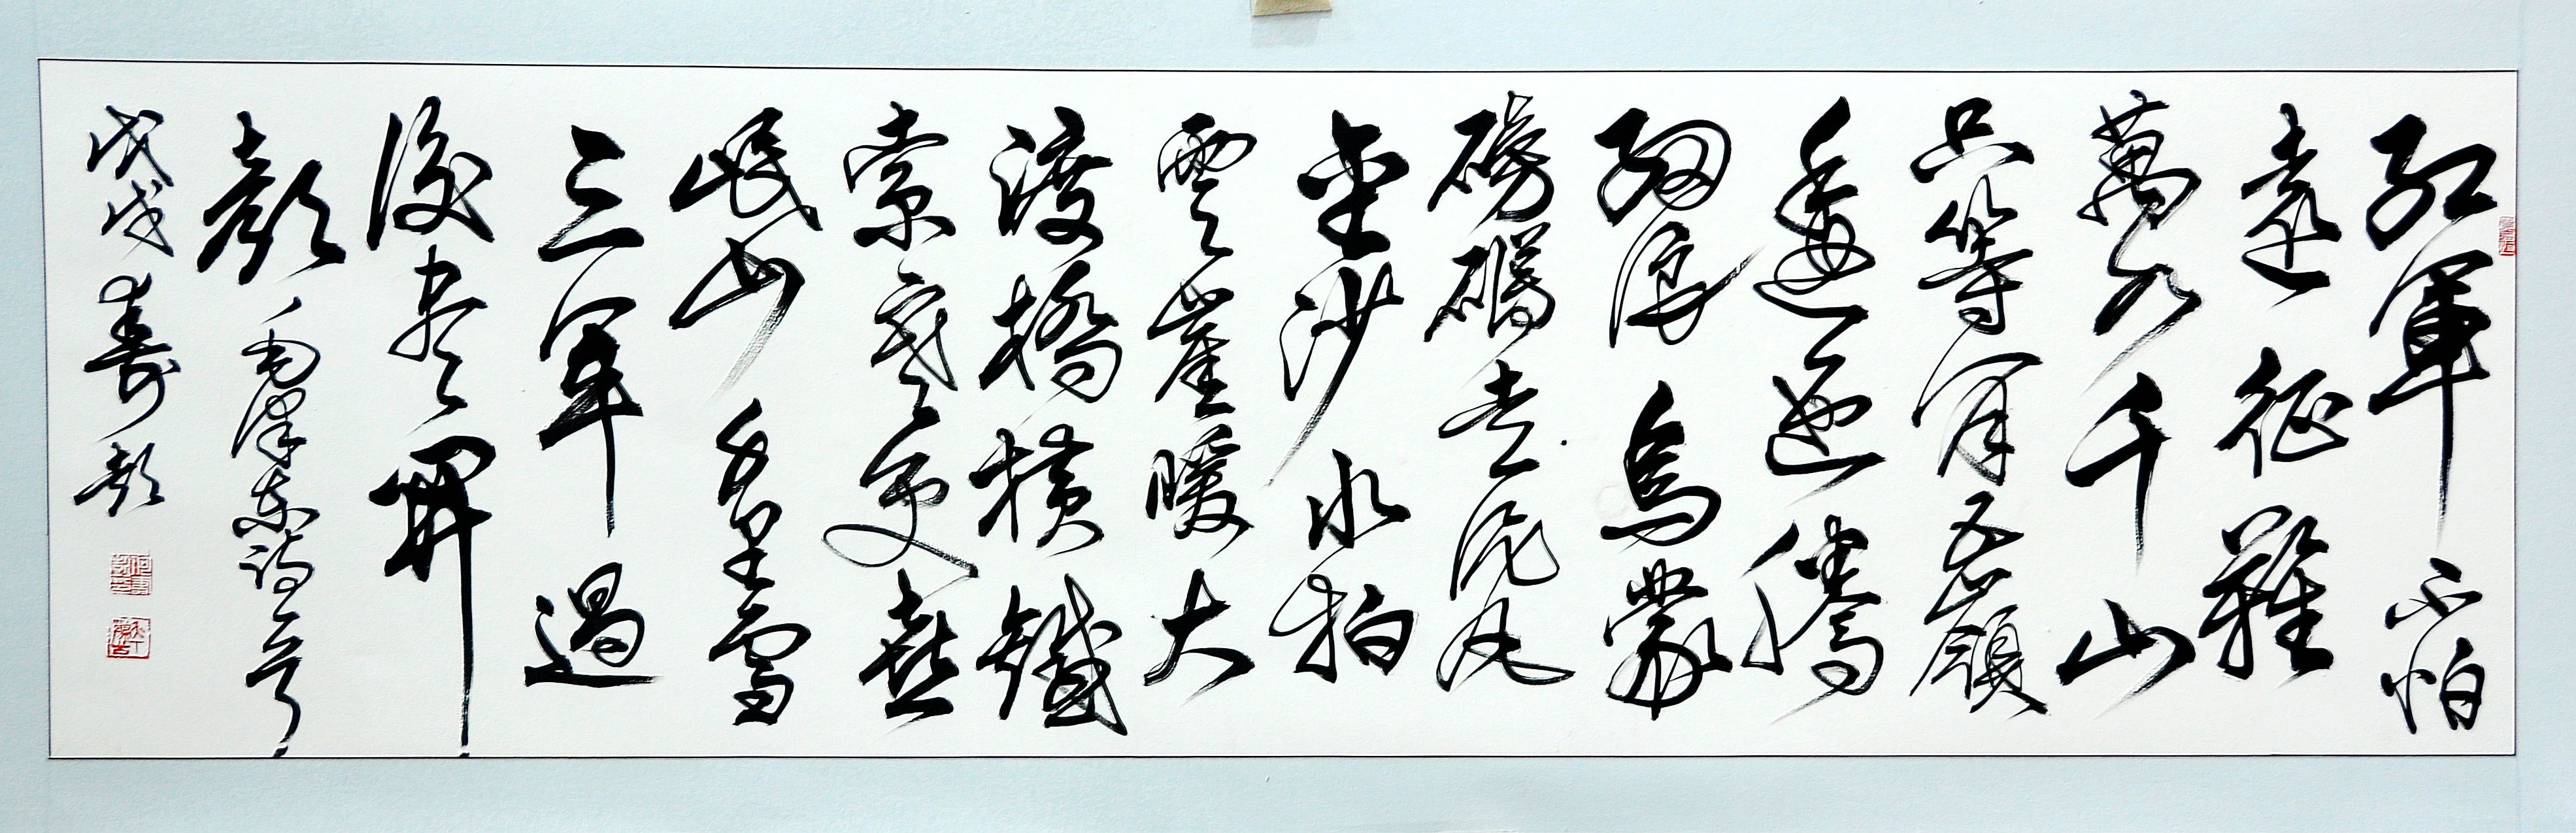 红軍不怕
遠征難
萬水千山
只等闲五嶺
逶迤騰
细浪烏蒙
磅礴走泥丸
金沙水拍
雲崖暖大
渡橋横鐵
索寒更喜
岷山千里雪
三軍過
後尽開
颜毛泽东诗一首
戊戌寿彭